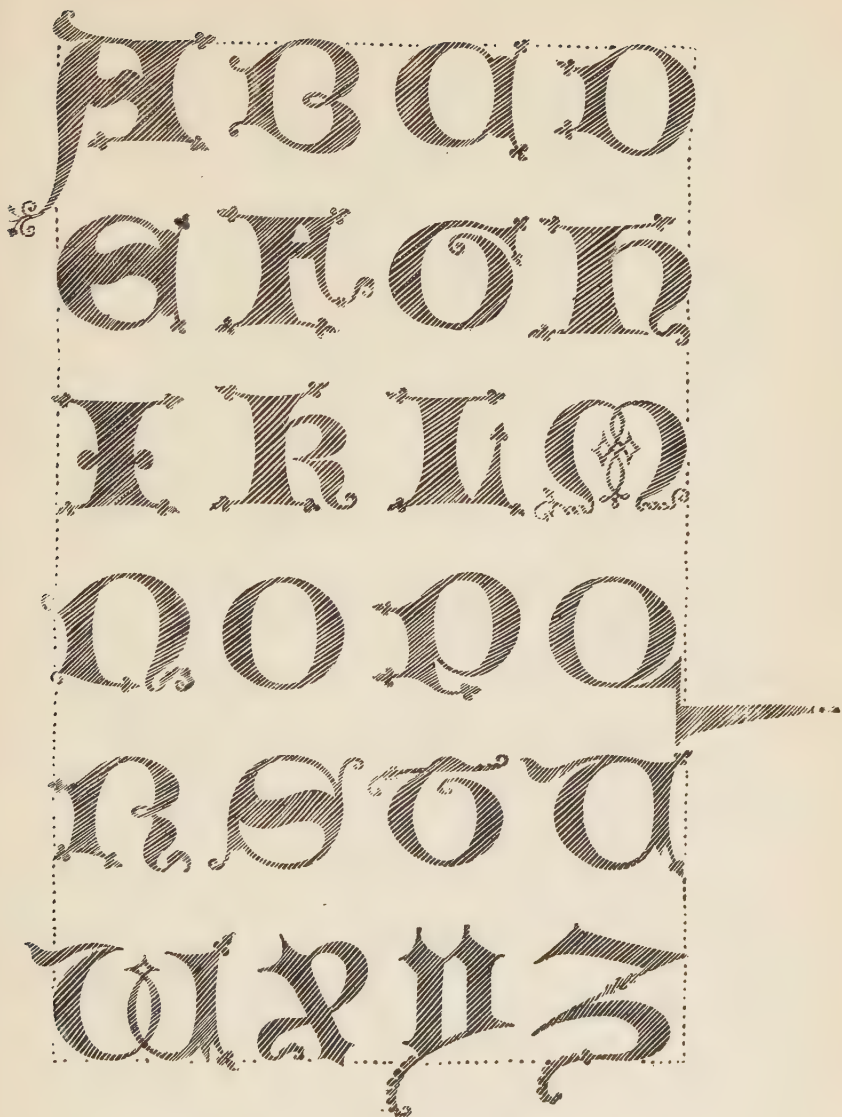 A B C D
E F G H
I K L M
N O P Q
R S T U
W X Y Z